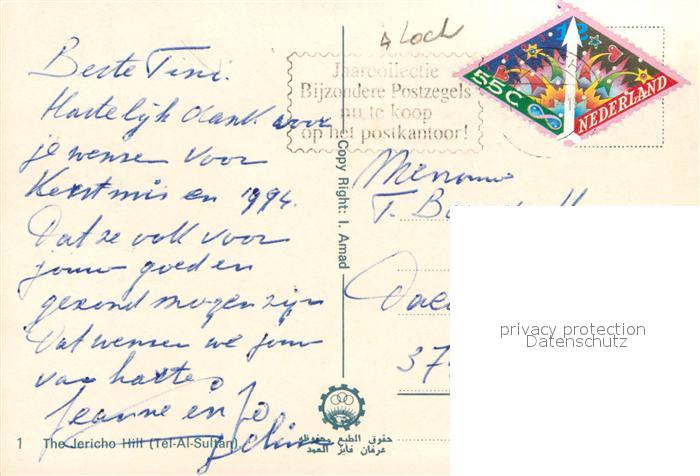 4 Loch
Beste Tini.
Hartelijk dank voor
je wensen voor
Kerstmis en 1994.
Dat ze ook voor
jouw goed en
gezond mogen zijn
Dat wensen we jouw
van harte,
Jeanne en Jo
1 The Jericho Hill (Tel-Al-Sultan)
Jaarcollectie
Bijzondere Postzegels
nu te koop
op het postkantoor!
55C
NEDERLAND
Copy Right: I. Amad
Mevrouw
T.
privacy protection
Datenschutz
حقوق الطبع محفوظة
عرفان فايز العمد